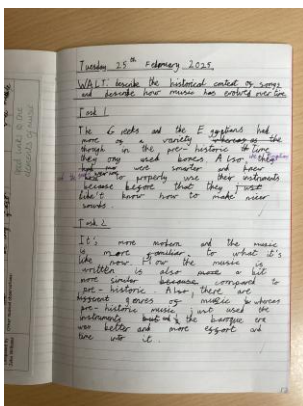 Tuesday 25th February 2025
WALT: describe the historical context of songs
and describe how music has evolved over time
Task 1
The Greeks and the Egyptians had
more of a variety whereas in the
though in the pre-historic time
they only used bones. Also they
were smarter and knew
how to properly use their instruments
because before that they just
didn't know how to make
sounds.
Task 2
It's more modern and the music
is more familiar to what it's
like now. How the music is
written is also a bit
more similar because compared to
pre-historic. Also, there are
different genres of music whereas
pre-historic music just used the
instruments the baroque era
was better and more effort and
time into it.
good links to the
elements of music